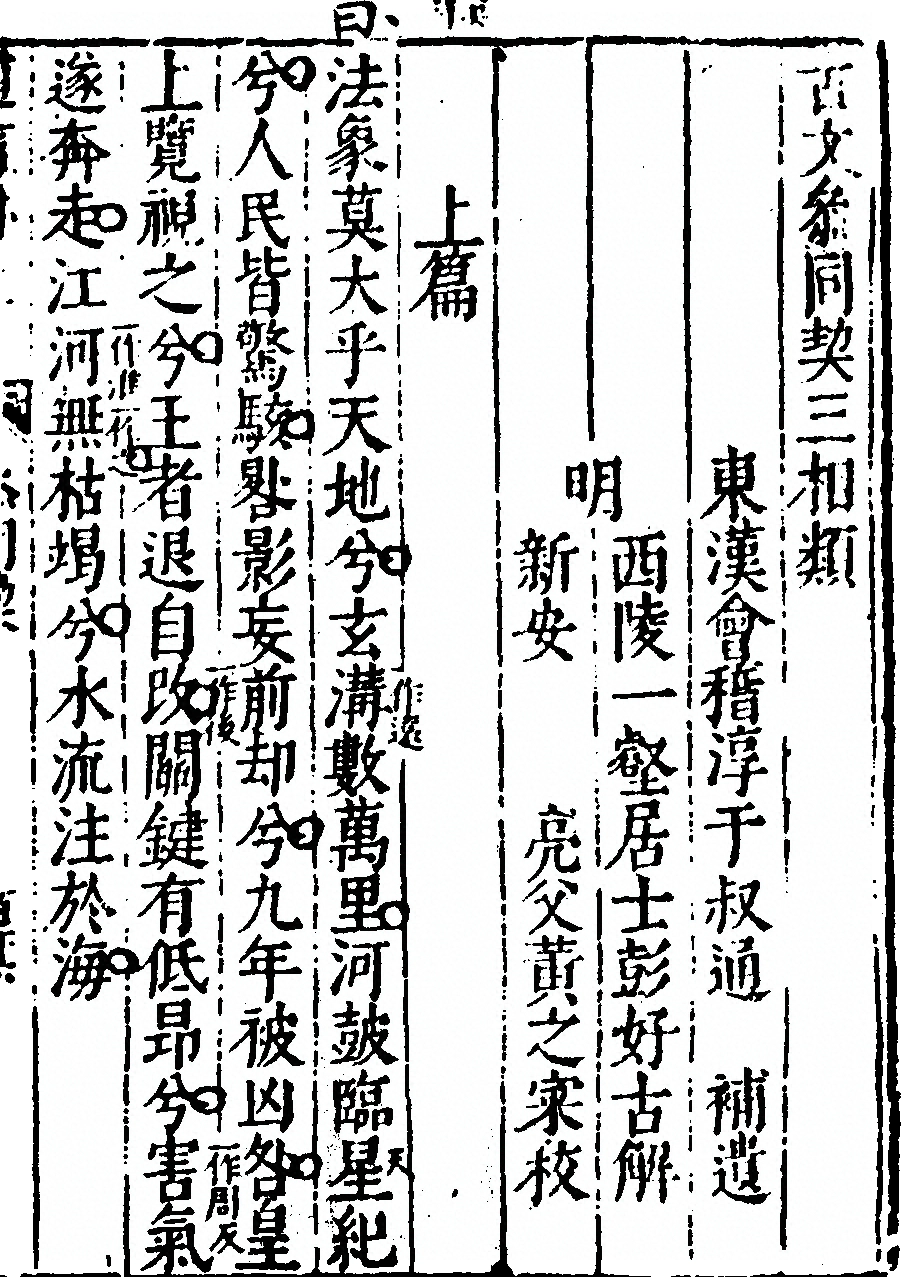 古文參同契三相類
東漢會稽淳于叔通 補遺
明
西陵一壑居士彭好古解
新安 亮父黃之寀校
上篇
曰
法象莫大乎天地兮玄溝數萬里河鼓臨星紀
一作逸
天
兮人民皆驚駭晷影妄前却兮九年被凶咎皇
一作後
一作周反
上覽視之兮王者退自改關鍵有低昂兮害氣
一作淮一作
遂奔走江河無枯竭兮水流注於海